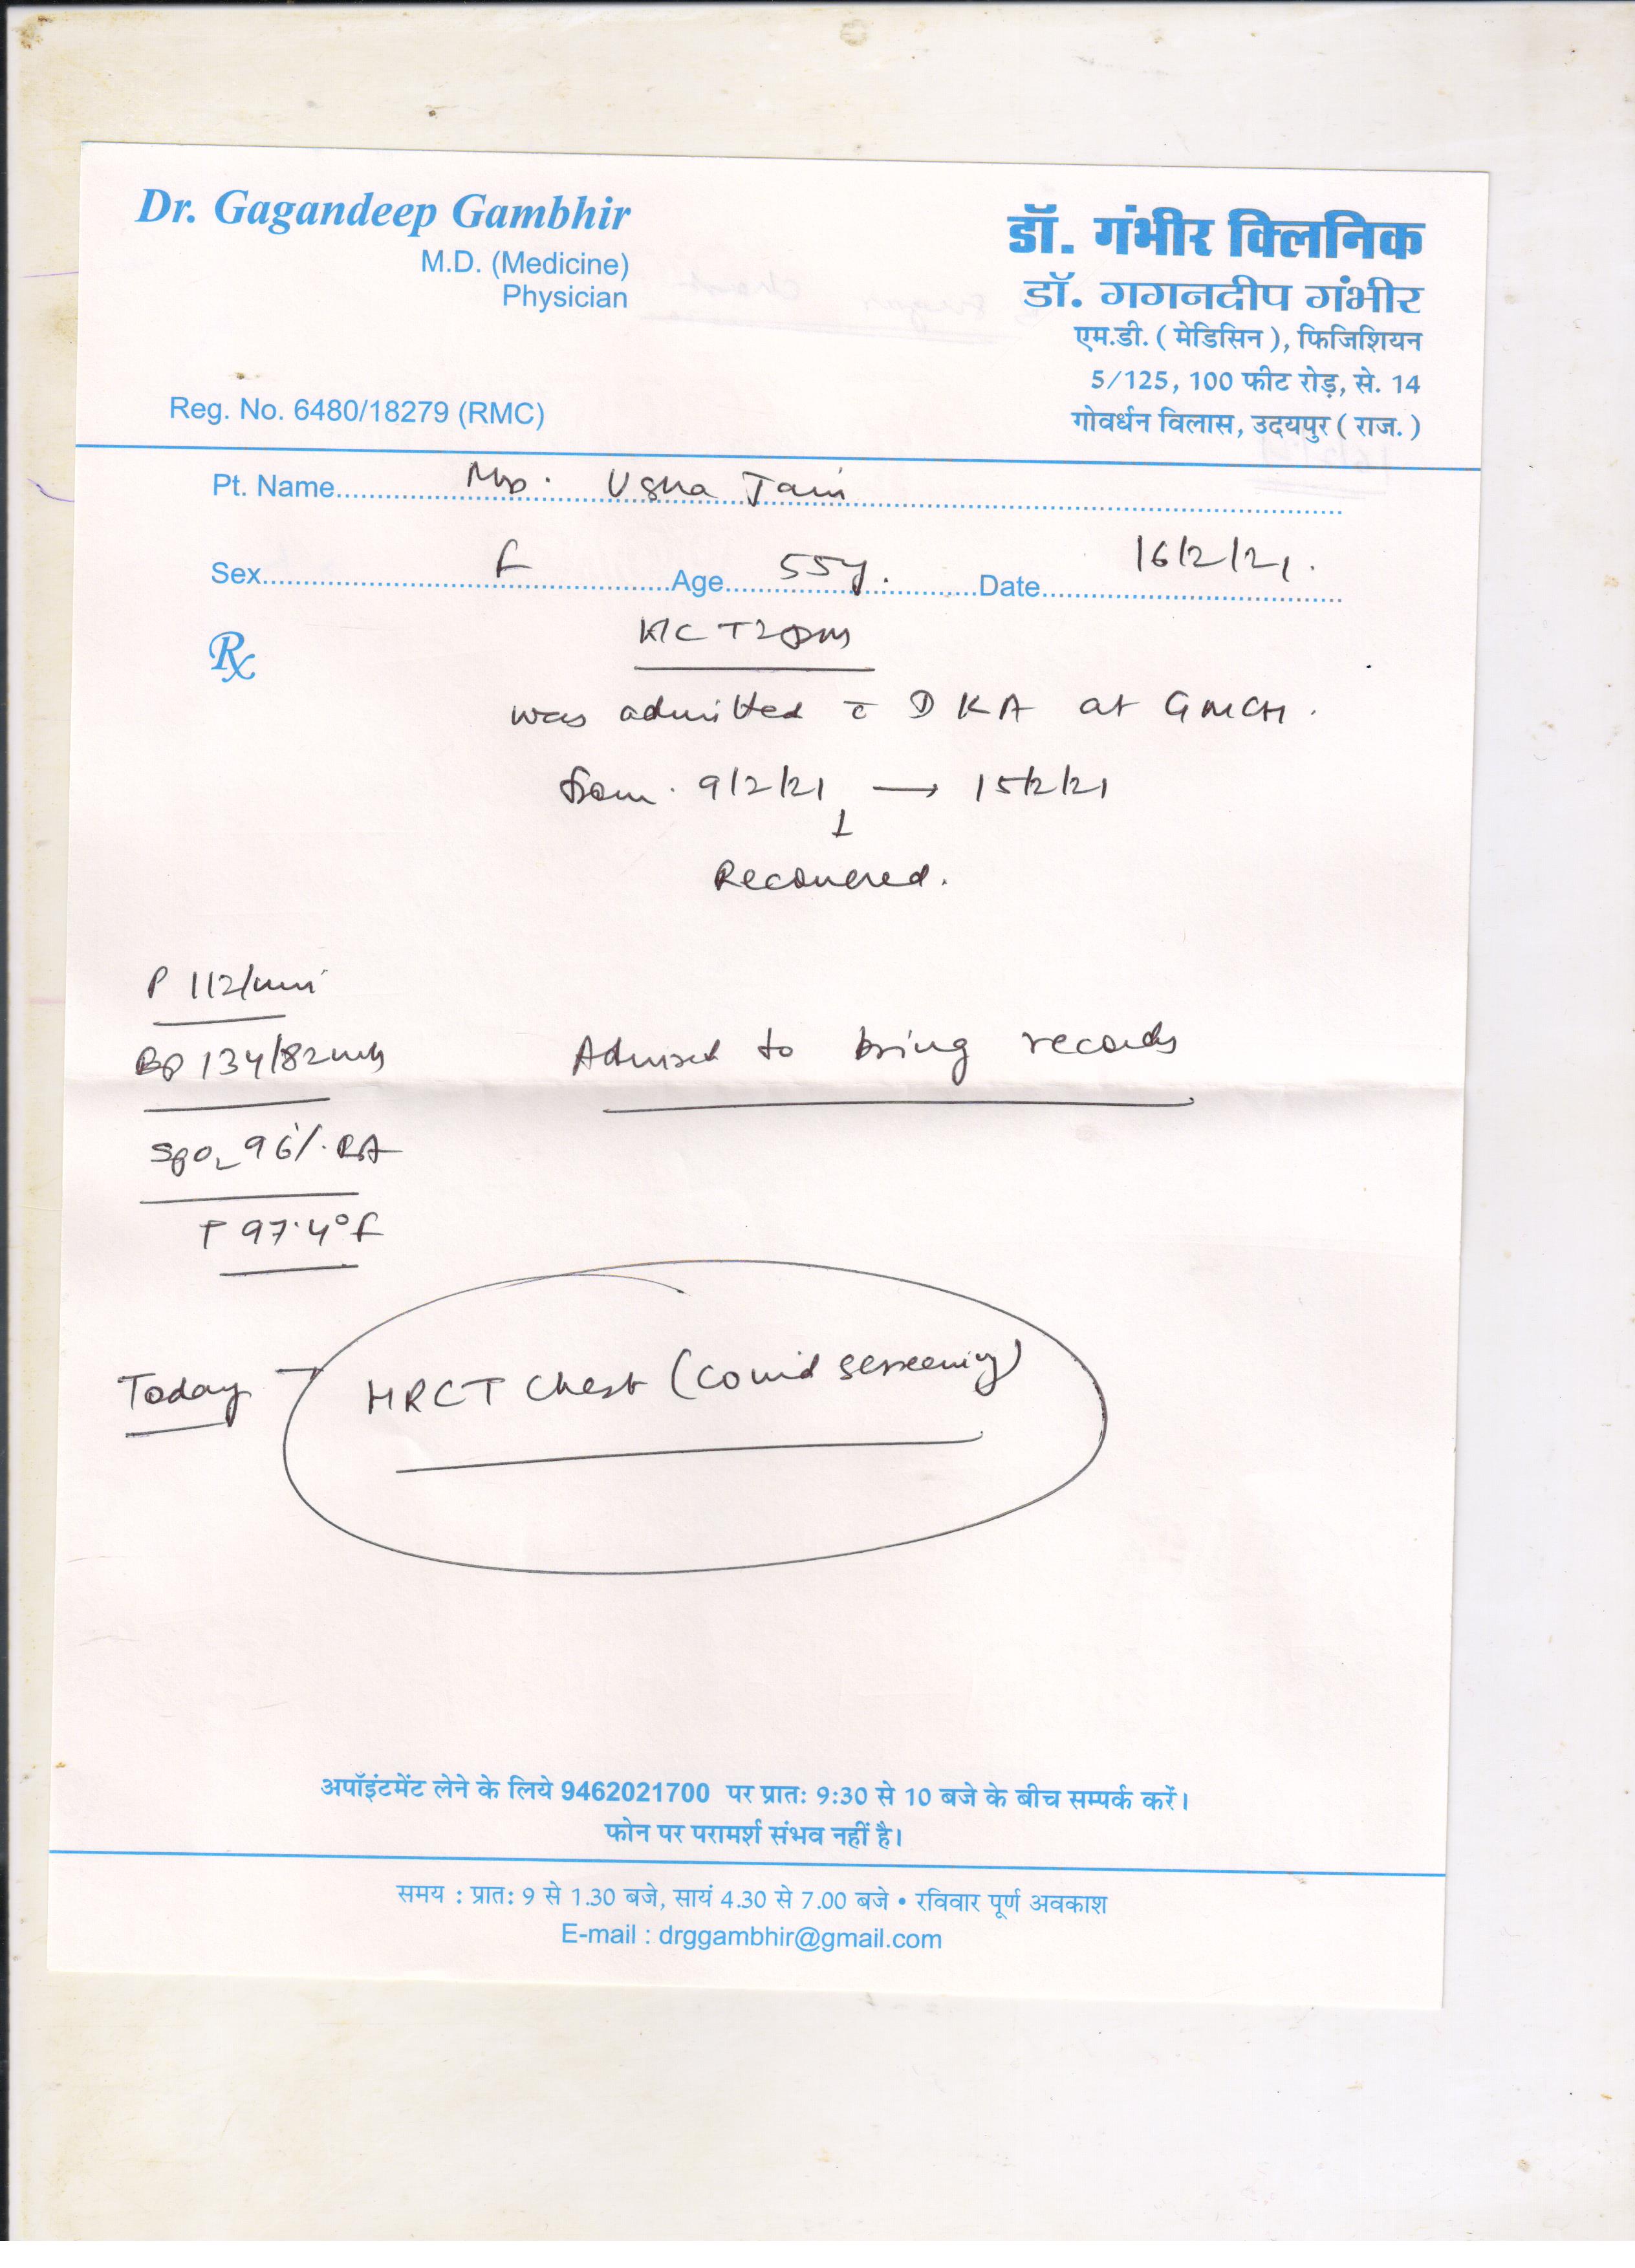 Dr. Gagandeep Gambhir
M.D. (Medicine)
Physician
Reg. No. 6480/18279 (RMC)
डॉ. गंभीर क्लिनिक
डॉ. गगनदीप गंभीर
एम.डी. ( मेडिसिन ), फिजिशियन
5/125, 100 फीट रोड़, से. 14
गोवर्धन विलास, उदयपुर ( राज. )
Pt. Name Mrs. Usha Jain
Sex F Age 55y. Date 16/2/21.
Rx
K/C T2DM
was admitted c̄ DKA at GMCH.
from 9/2/21 → 15/2/21
↓
Recovered.
P 112/min
BP 134/82
Advised to bring records
SpO2 96% RA
T 97.4°F
Today HRCT Chest (Covid screening)
अपॉइंटमेंट लेने के लिये 9462021700 पर प्रातः 9:30 से 10 बजे के बीच सम्पर्क करें।
फोन पर परामर्श संभव नहीं है।
समय : प्रातः 9 से 1.30 बजे, सायं 4.30 से 7.00 बजे • रविवार पूर्ण अवकाश
E-mail : drggambhir@gmail.com